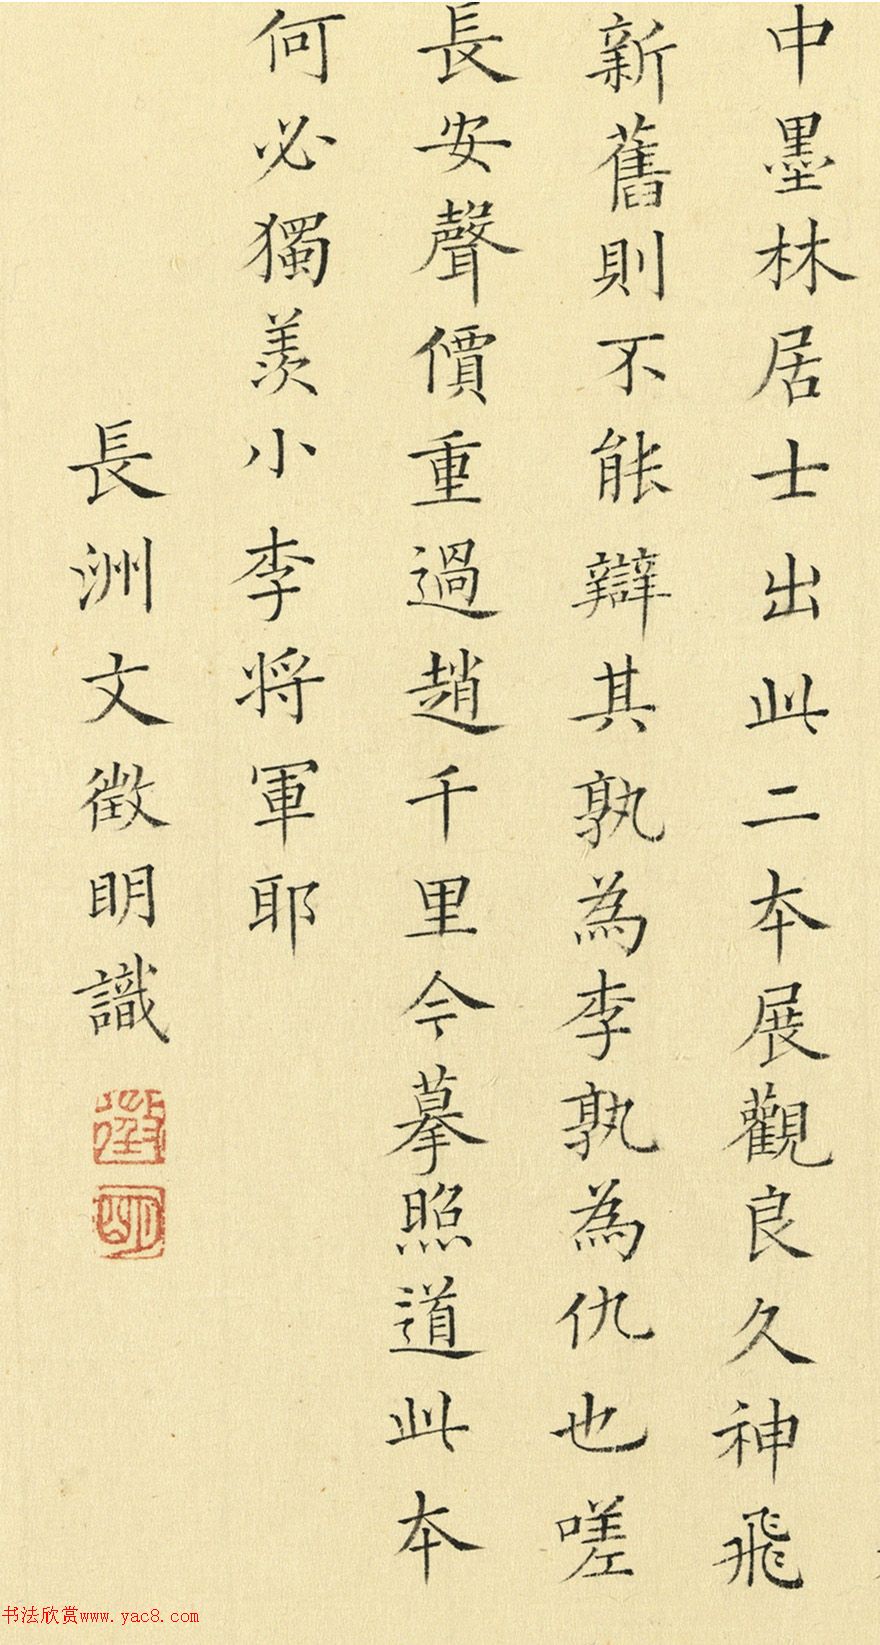 中墨林居士出此二本展觀良久神飛
新舊則不能辯其孰為李孰為仇也嗟
長安聲價重過趙千里今摹照道此本
何必獨羨小李将軍耶
長洲文徵明識
徵
明
书法欣赏www.yac8.com